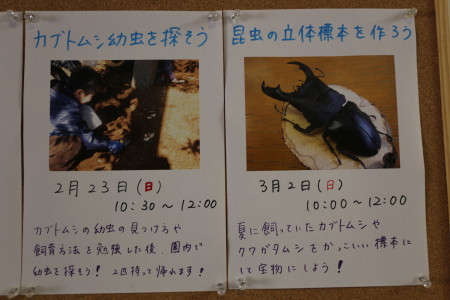 カブトムシ幼虫を探そう
2月23日(日)
10:30～12:00
カブトムシの幼虫の見つけ方や
飼育方法を勉強した後、園内で
幼虫を探そう! 2匹持って帰れます!
昆虫の立体標本を作ろう
3月2日(日)
10:00～12:00
夏に飼っていたカブトムシや
クワガタムシをかっこいい標本に
して宝物にしよう!